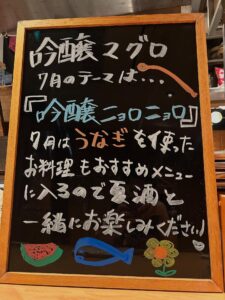 吟醸マグロ
7月のテーマは...
『吟醸ニョロニョロ』
7月はうなぎを使った
お料理もおすすめメニュー
に入るので夏酒と
一緒にお楽しみください!